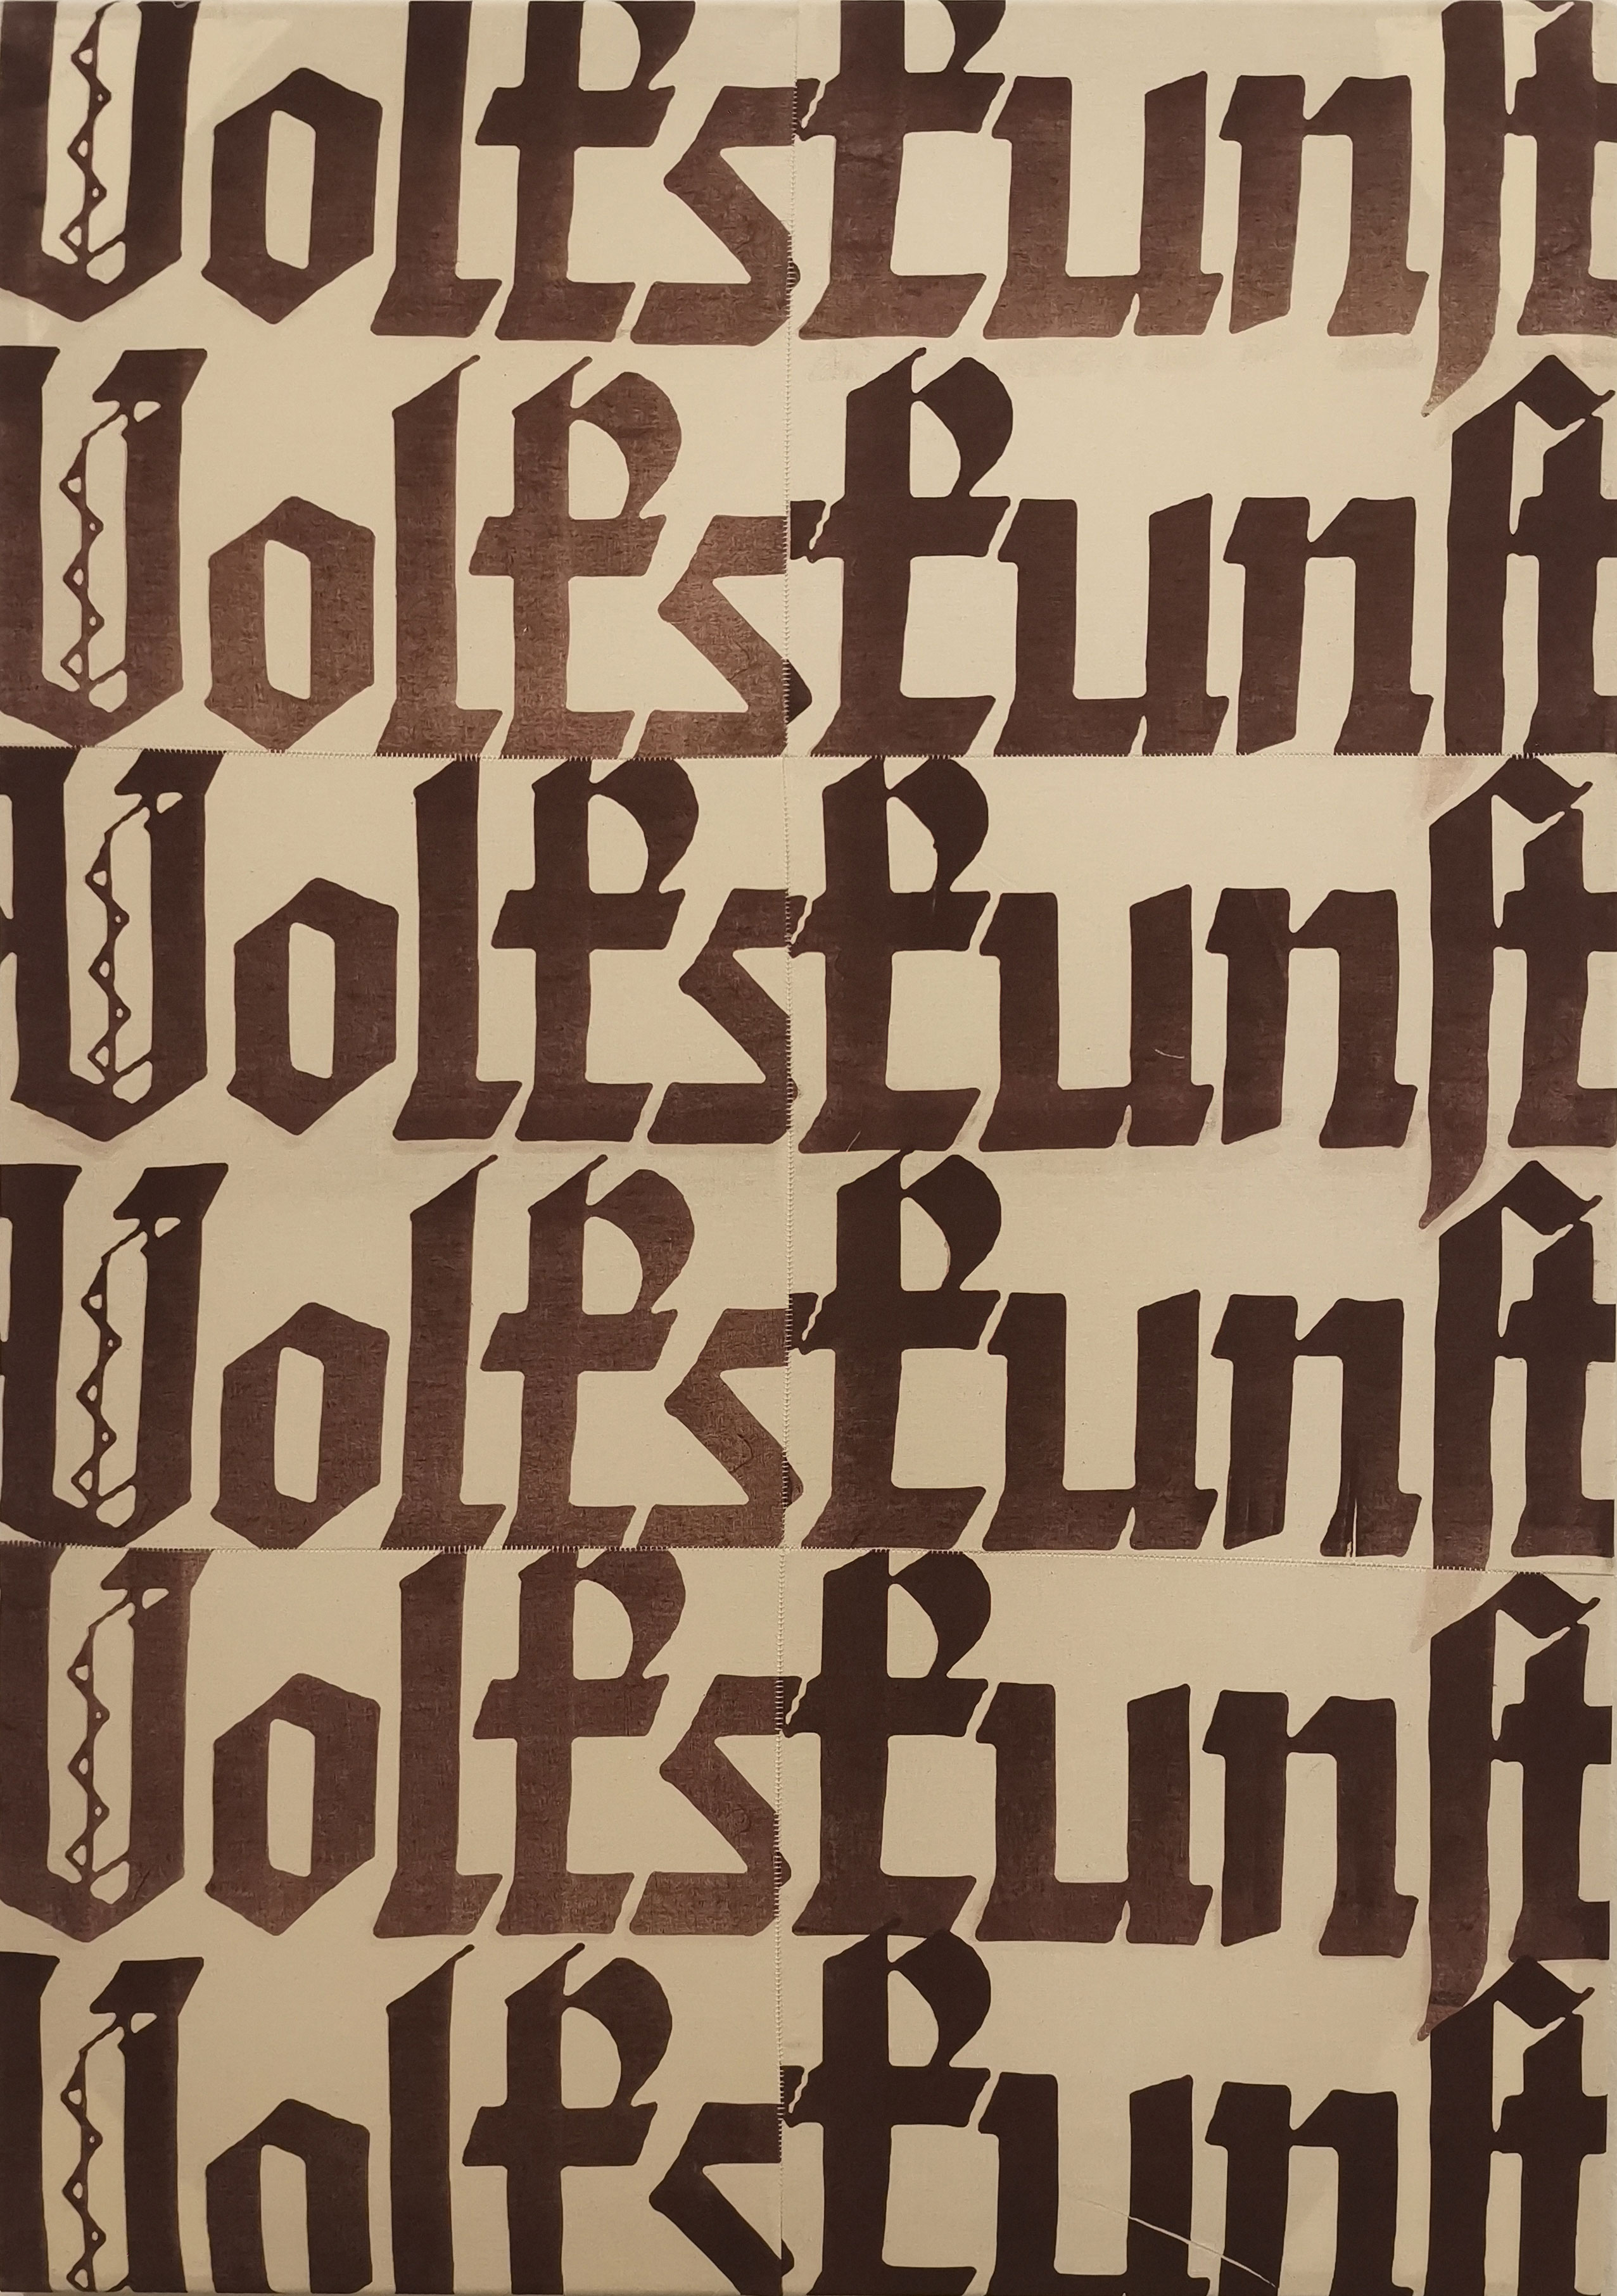 Volkskunst
Volkskunst
Volkskunst
Volkskunst
Volkskunst
Volkskunst